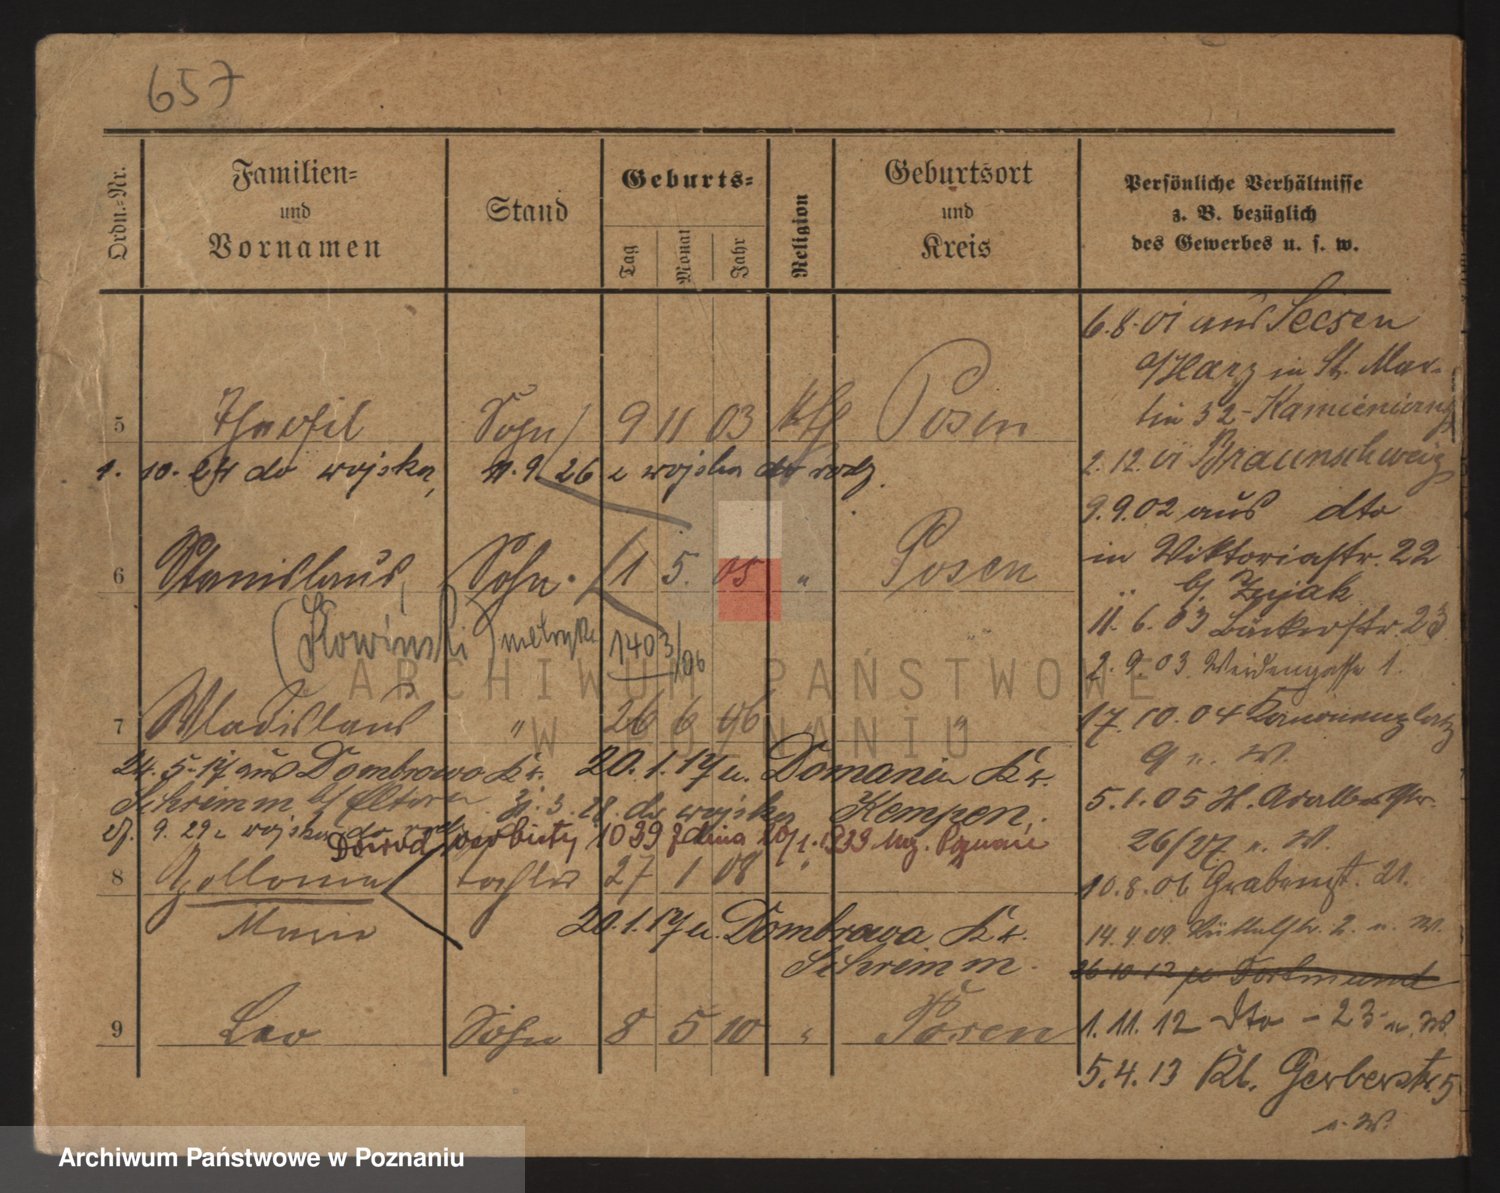 657
Ordn.=Nr.
Familien=
und
Vornamen
Stand
Geburts=
Tag
Monat
Jahr
Religion
Geburtsort
und
Kreis
Persönliche Verhältnisse
z. B. bezüglich
des Gewerbes u. s. w.
5 Theofil Sohn 9 11 03 kth Posen
1. 10. 24 do wojska, 11. 9. 26 z wojska do rodz.
6 Stanislaus, Sohn. 1 5. 05 " Posen
(Słowiński) metryka 1403/06
7 Wladislaus " 26 6 06 " "
24. 5. 17 aus Dombrowo Kr. 20. 1. 17 u. Domanin Kr.
Schrimm b/ Eltern 3. 28. do wojska Kempen.
27. 9. 29 z wojska do rodz.
Dowód osobisty 1039 z dnia 20/1. 1933 Mg. Poznań
8 Apollonia Tochter 27 1 08 "
Maria 20. 1. 17 u. Dombrowa Kr.
Schrimm.
9 Leo Sohn 8 5 10 " Posen
6. 8. 01 aus Seesen
a/Harz in St. Mar-
tin 32 -
2. 12. 01 Braunschweig
9. 9. 02 aus dto
in Viktoriastr. 22
b/
11. 6. 03 Bäckerstr. 23.
2. 9. 03. Weidengasse 1.
17. 10. 04 Kanonenplatz
9 u. W.
5. 1. 05 St. Adalbertstr.
26/27 u. W.
10. 8. 06 Grabenst. 21.
14. 4. 09. Büttelstr. 2. u. W.
26 10 12 Dortmund
1. 11. 12 dto - 23 u. W.
5. 4. 13 Kl. Gerberstr. 5
u. W.
ARCHIWUM PAŃSTWOWE
W POZNANIU
Archiwum Państwowe w Poznaniu